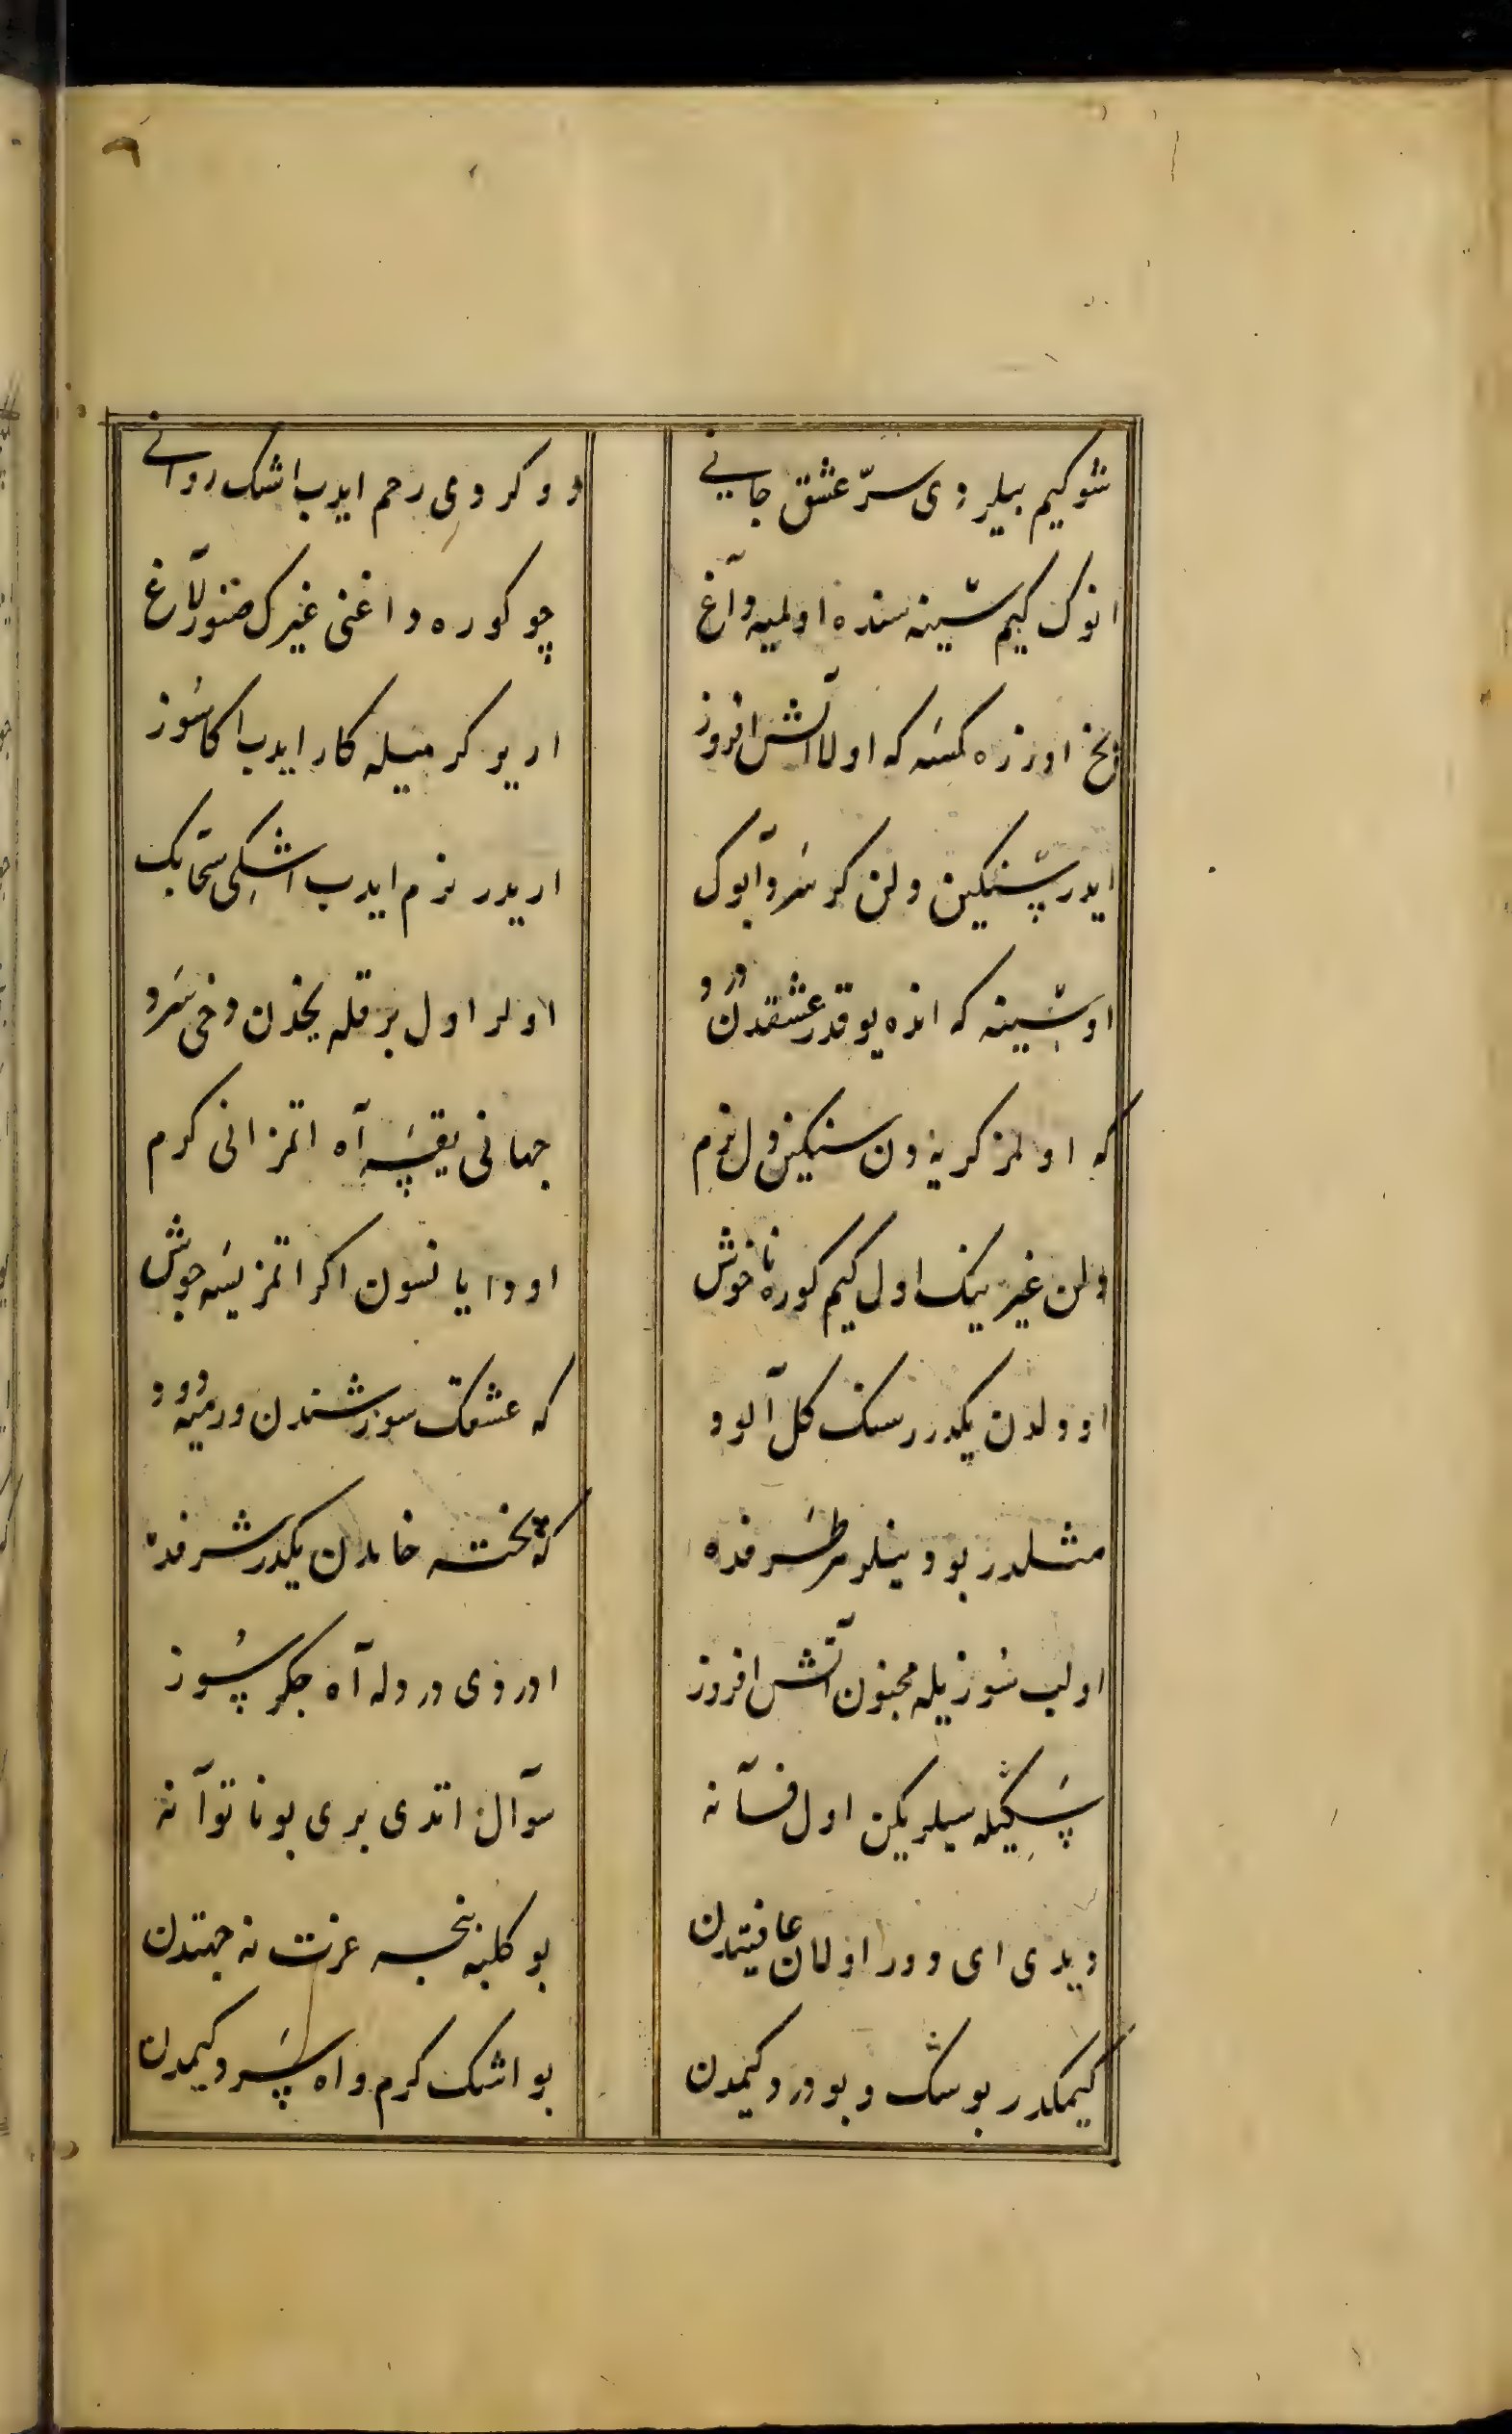 شو كیم بیلردی سرّ عشق جانی دوكردی رحم ایدب اشك روانی
انوك كیم سینه سنده اولمیه داغ چو كوره داغنی غیرك صنور لاغ
یخ اوزره كمسه كه اولا آتش افروز ار یر كرمیله كار ایدب اكا سوز
ایدر سنكین دلن كر سرد آبوك اریدر نرم ایدب اشكی سحابك
او سینه كه انده یوقدر عشقدن درد اولر اول بر قله یخدن دخی سرد
كه اولمز كریه دن سنكین دل نرم جهانی یقسه آه اتمز انی كرم
دلن غیرینك اول كیم كوره ناخوش اودا یانسون اكر اتمزیسه جوش
او دلدن یكدرر سنك كل آلود كه عشقك سوزشندن ورمیه دود
مثلدر بو دینلر هر طرفده كه پخته خامدن یكدر شرفده
اولب سوزیله مجنون آتش افروز اوردی دردله آه جكر سوز
سكیله سیلریكن اول فسانه سوآل اتدی بری بو ناتوآنه
دیدی ای دور اولان عافیتدن بو كلبه بنجه عزت نه جهتدن
كیمكدر بو سك و بو درد كیمدن بو اشك كرم و اه سرد كیمدن